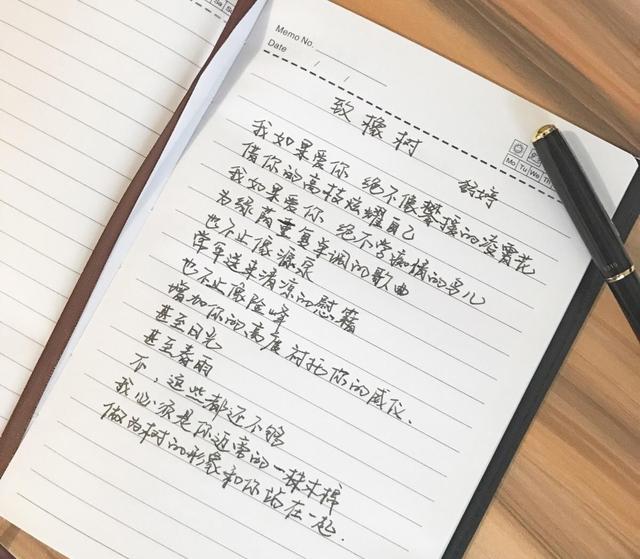 Sa
Su
Memo No.
Date / /
Mo Tu We Th
致橡树 舒婷
我如果爱你 绝不像攀援的凌霄花
借你的高枝炫耀自己
我如果爱你 绝不学痴情的鸟儿
为绿荫重复单调的歌曲
也不止像源泉
常年送来清凉的慰藉
也不止像险峰
增加你的高度 衬托你的威仪、
甚至日光
甚至春雨
不,这些都还不够
我必须是你近旁的一株木棉
做为树的形象和你站在一起.